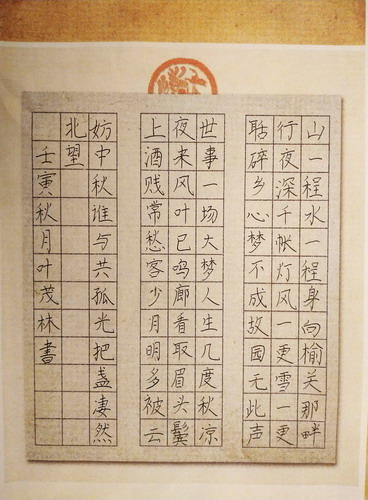 山一程水一程身向榆关那畔
行夜深千帐灯风一更雪一更
聒碎乡心梦不成故园无此声
世事一场大梦人生几度秋凉
夜来风叶已鸣廊看取眉头鬓
上酒贱常愁客少月明多被云
妨中秋谁与共孤光把盏凄然
北望
壬寅秋月叶茂林書